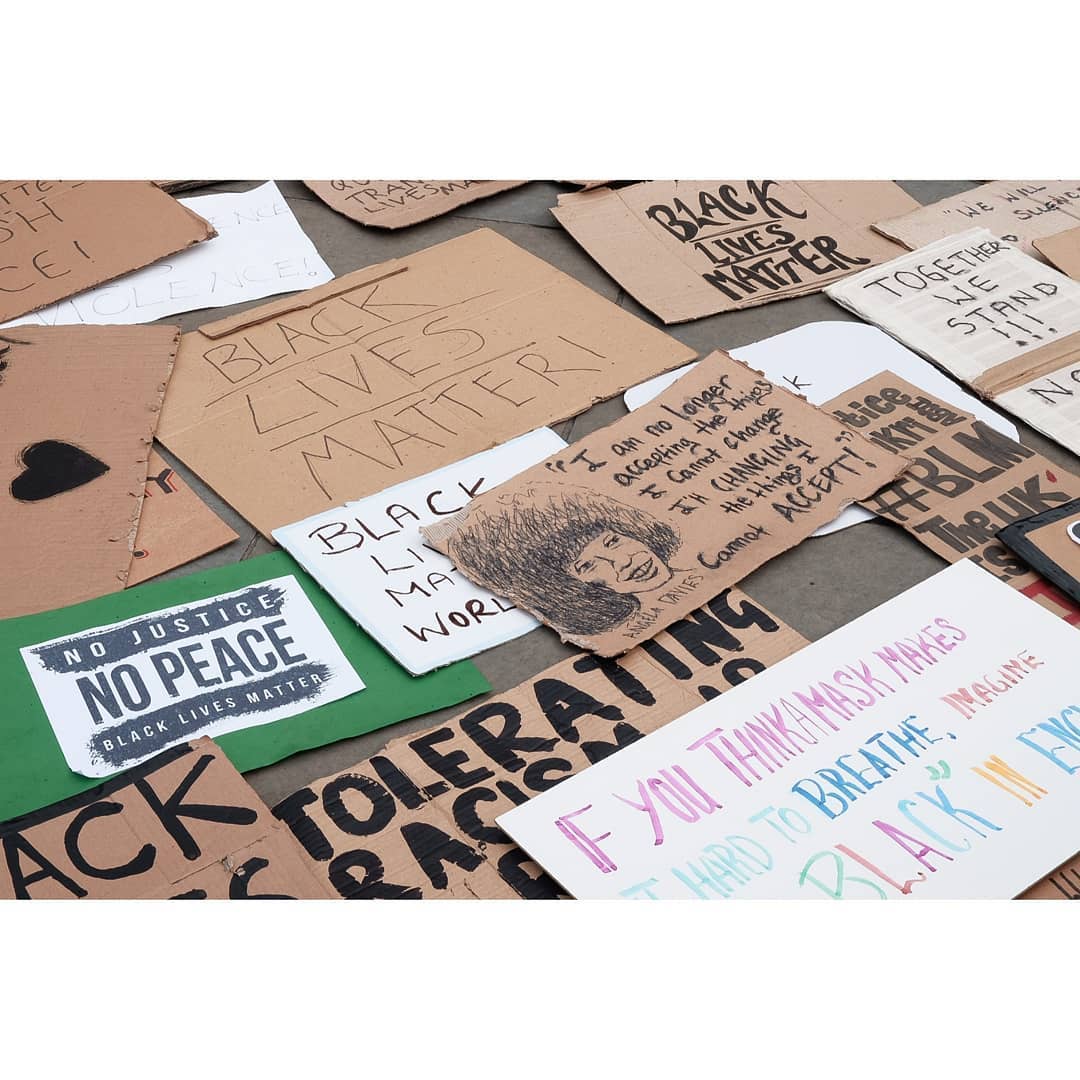 VIOLENCE!
TRAN
LIVES MA
BLACK
LIVES
MATTER
"WE WILL
TOGETHER
WE
STAND
!!!
BLACK
LIVES
MATTER!
"I am no longer
accepting the things
I cannot change
I'M CHANGING
the things I
Cannot ACCEPT!"
ANGELA DAVIES
#BLM
The UK
BLACK
LI
MA
WORL
NO JUSTICE
NO PEACE
BLACK LIVES MATTER
ACK
TOLERATING
RACISM
IF YOU THINK A MASK MAKES
IT HARD TO BREATHE, IMAGINE
BLACK" IN ENG